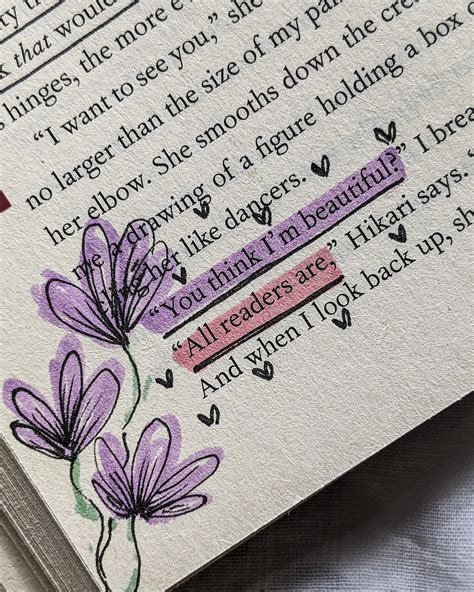 that would
hinges, the more
"I want to see you," she
no larger than the size of my
her elbow. She smooths down the
me a drawing of a figure holding a box
her like dancers.
"You think I'm beautiful?" I
"All readers are," Hikari says.
And when I look back up,